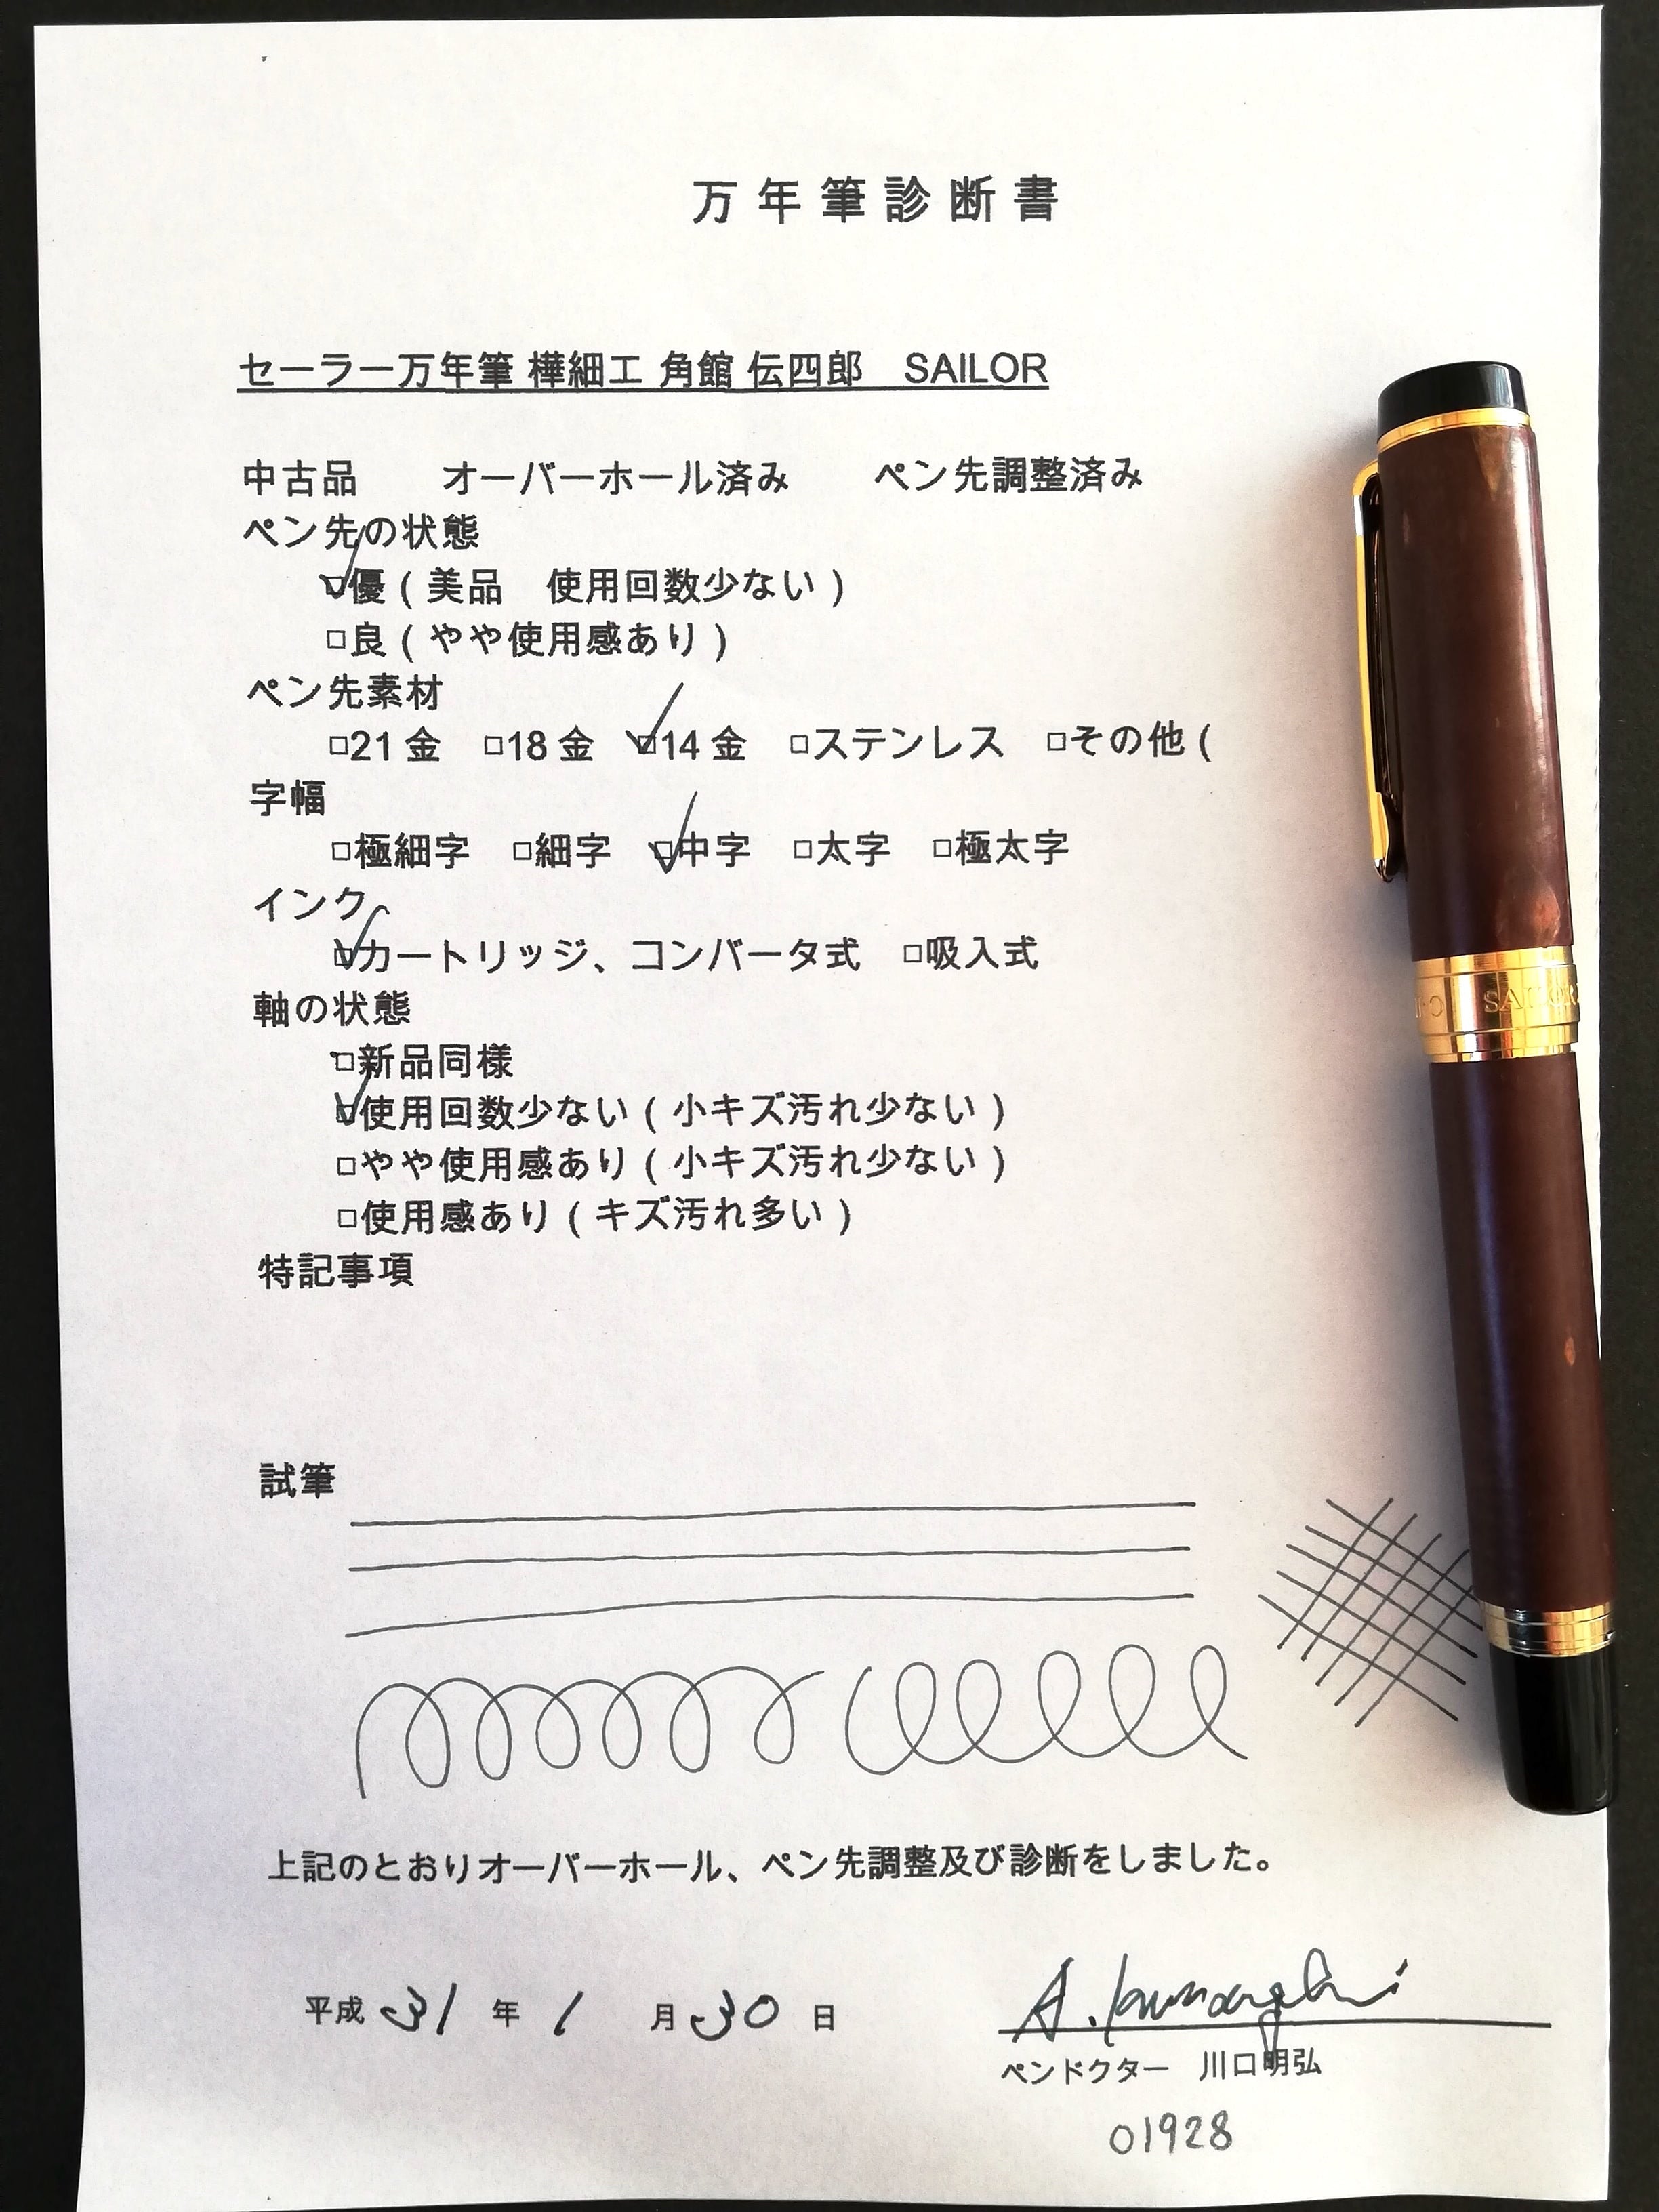 万年筆診断書
セーラー万年筆 樺細工 角館 伝四郎　SAILOR
中古品　オーバーホール済み　ペン先調整済み
ペン先の状態
☑優（美品　使用回数少ない）
□良（やや使用感あり）
ペン先素材
□21金　□18金　☑14金　□ステンレス　□その他（
字幅
□極細字　□細字　☑中字　□太字　□極太字
インク
☑カートリッジ、コンバータ式　□吸入式
軸の状態
□新品同様
☑使用回数少ない（小キズ汚れ少ない）
□やや使用感あり（小キズ汚れ少ない）
□使用感あり（キズ汚れ多い）
特記事項
試筆
上記のとおりオーバーホール、ペン先調整及び診断をしました。
平成 31 年 1 月 30 日
A. Kawaguchi
ペンドクター　川口明弘
01928
SAILOR